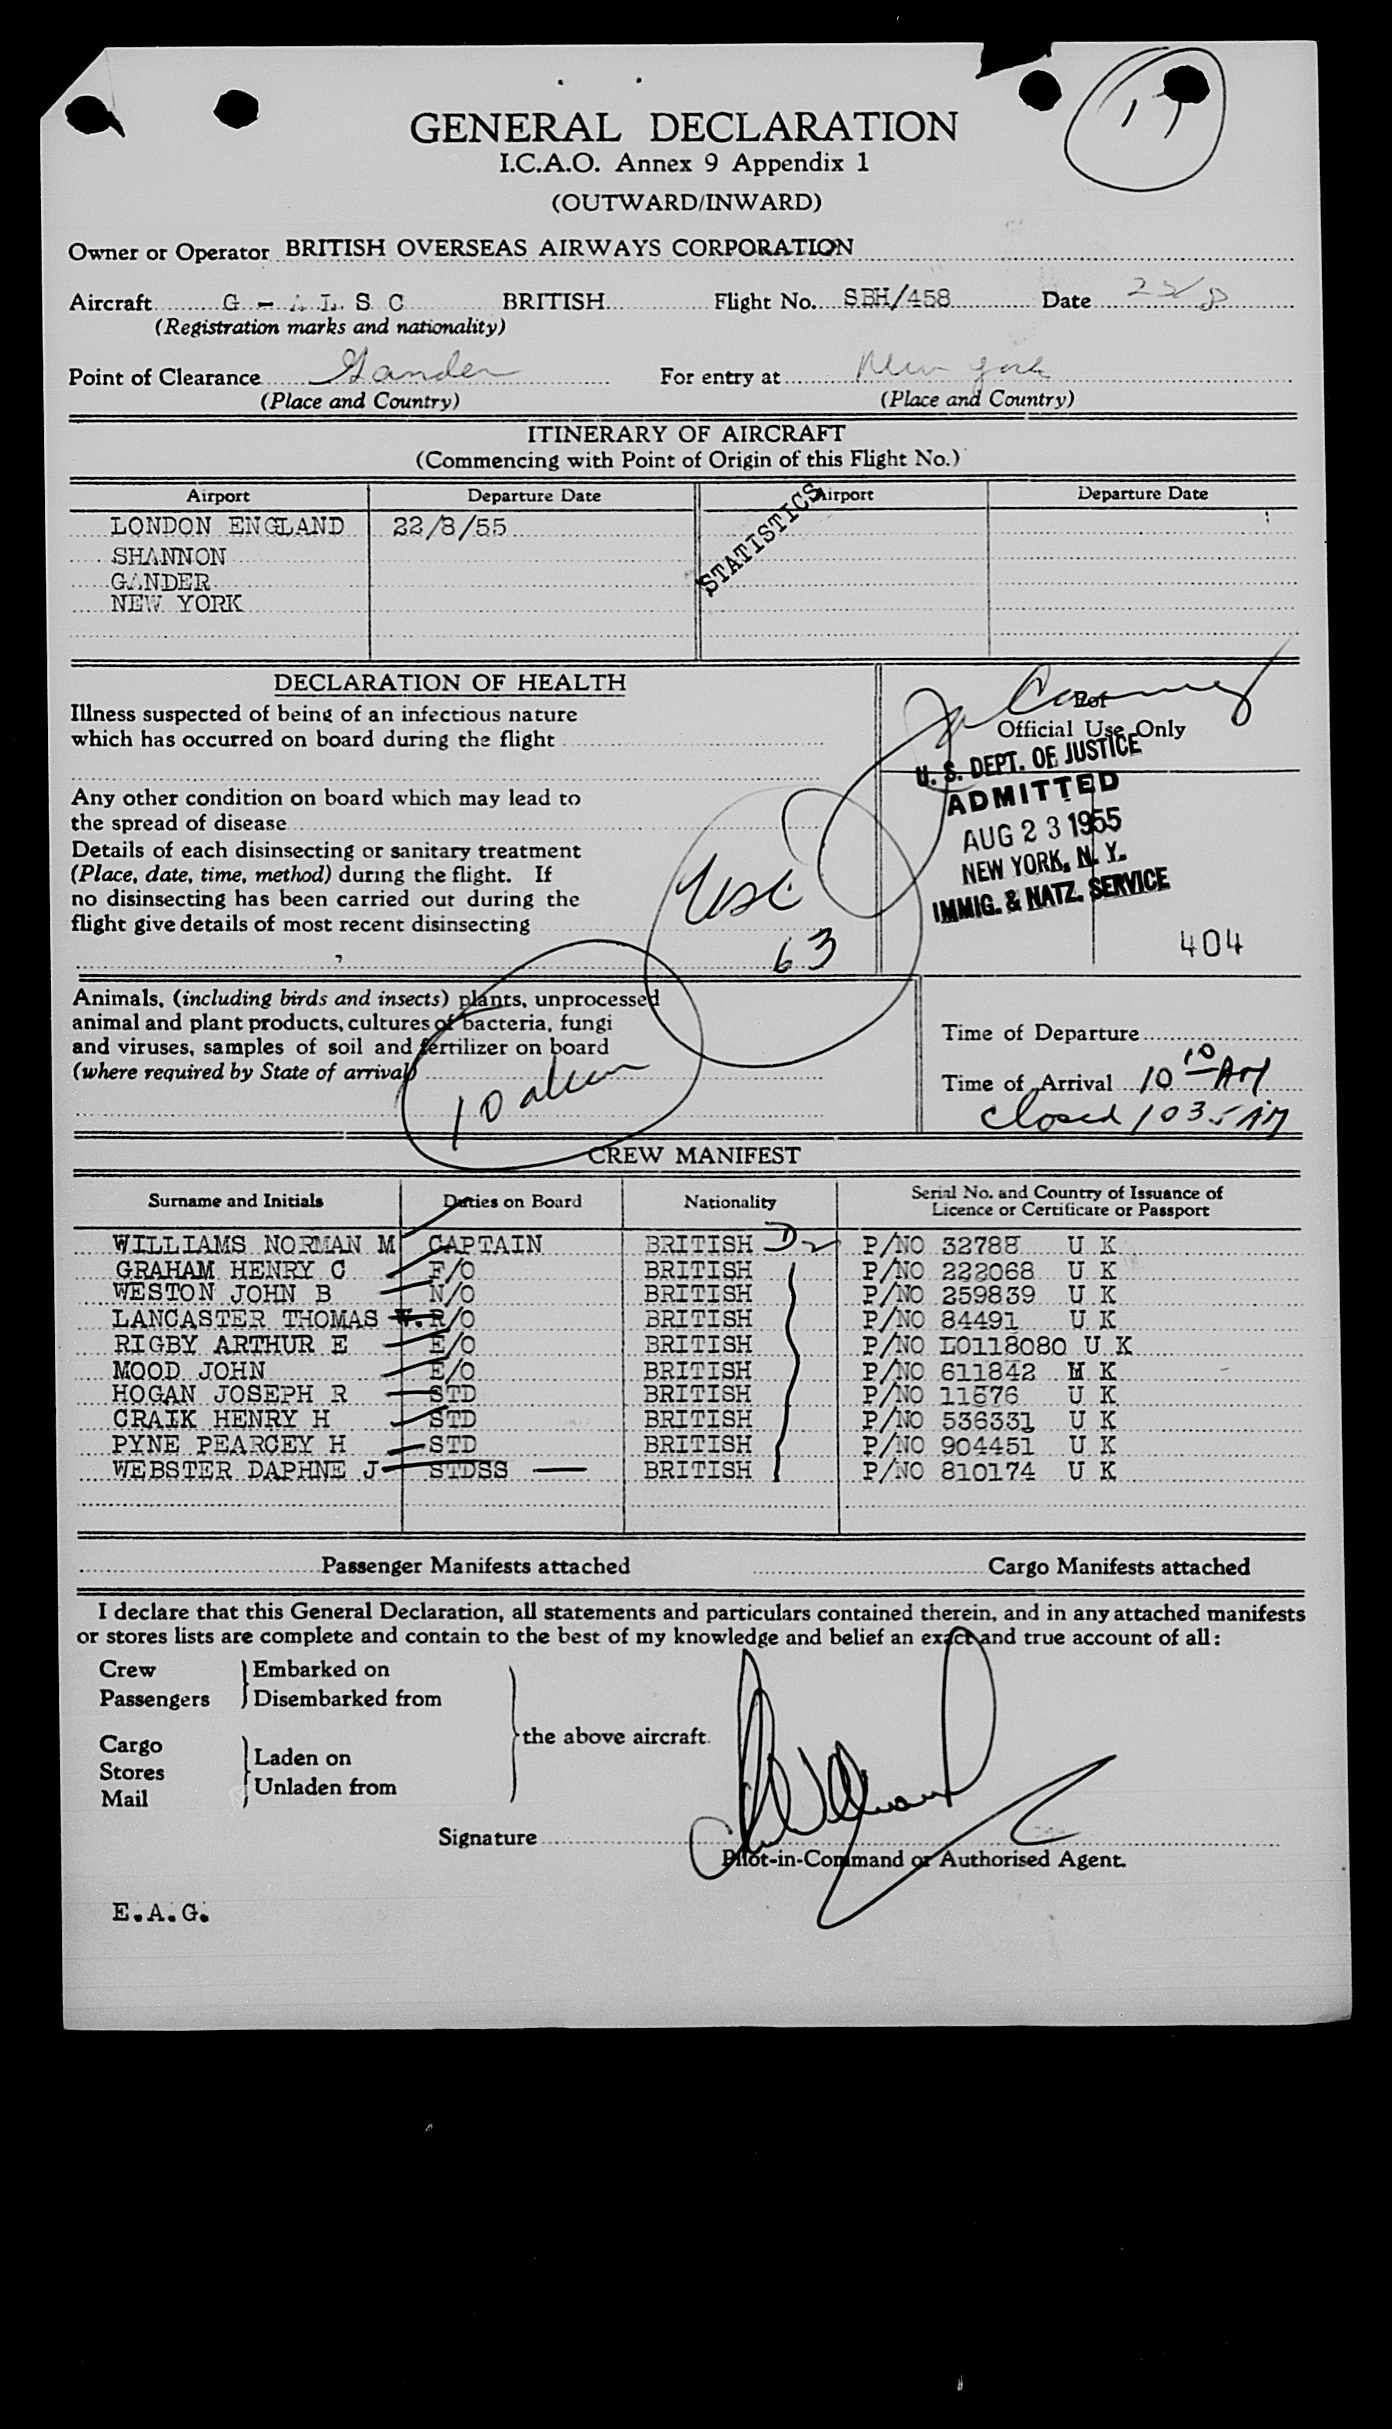 17
GENERAL DECLARATION
I.C.A.O. Annex 9 Appendix 1
(OUTWARD/INWARD)
Owner or Operator BRITISH OVERSEAS AIRWAYS CORPORATION
Aircraft G - A L S C BRITISH Flight No. SBH/458 Date 22/8
(Registration marks and nationality)
Point of Clearance Gander For entry at New York
(Place and Country) (Place and Country)
ITINERARY OF AIRCRAFT
(Commencing with Point of Origin of this Flight No.)
Airport Departure Date Airport Departure Date
STATISTICS
LONDON ENGLAND 22/8/55
SHANNON
GANDER
NEW YORK
DECLARATION OF HEALTH
Illness suspected of being of an infectious nature
which has occurred on board during the flight
For
Official Use Only
U. S. DEPT. OF JUSTICE
ADMITTED
AUG 23 1955
NEW YORK, N. Y.
IMMIG. & NATZ. SERVICE
404
Any other condition on board which may lead to
the spread of disease
Details of each disinsecting or sanitary treatment
(Place, date, time, method) during the flight. If
no disinsecting has been carried out during the
flight give details of most recent disinsecting
USC
63
Animals, (including birds and insects) plants, unprocessed
animal and plant products, cultures of bacteria, fungi
and viruses, samples of soil and fertilizer on board
(where required by State of arrival)
10 alien
Time of Departure
Time of Arrival 10 10 AM
Closed 1035 AM
CREW MANIFEST
Surname and Initials Duties on Board Nationality Serial No. and Country of Issuance of Licence or Certificate or Passport
WILLIAMS NORMAN M CAPTAIN BRITISH D2 P/NO 32788 U K
GRAHAM HENRY C F/O BRITISH P/NO 222068 U K
WESTON JOHN B N/O BRITISH P/NO 259839 U K
LANCASTER THOMAS W. R/O BRITISH P/NO 84491 U K
RIGBY ARTHUR E E/O BRITISH P/NO LO118080 U K
MOOD JOHN E/O BRITISH P/NO 611842 K
HOGAN JOSEPH R STD BRITISH P/NO 11576 U K
CRAIK HENRY H STD BRITISH P/NO 536331 U K
PYNE PEARCEY H STD BRITISH P/NO 904451 U K
WEBSTER DAPHNE J STDSS BRITISH P/NO 810174 U K
Passenger Manifests attached Cargo Manifests attached
I declare that this General Declaration, all statements and particulars contained therein, and in any attached manifests
or stores lists are complete and contain to the best of my knowledge and belief an exact and true account of all:
Crew Embarked on
Passengers Disembarked from
the above aircraft.
Cargo
Stores Laden on
Mail Unladen from
Signature
Pilot-in-Command or Authorised Agent.
E.A.G.